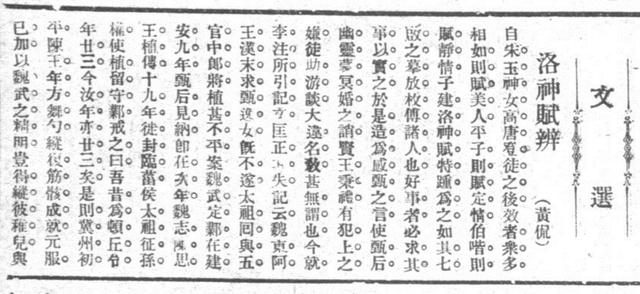 文選
洛神賦辨
(黃侃)
自宋玉神女高唐登徒之後效者衆多
相如則賦美人平子則賦定情伯喈則
賦靜情子建洛神賦特踵爲之如其七
啟之摹放枚傅諸人也好事者必求其
事以實之於是造爲感甄之言使甄后
幽靈蒙冥婚之誚賢王秉禮有犯上之
嫌徒助游談大違名敎甚無謂也今就
李注所引記文匡正其失記云魏東阿
王漢末求甄逸女旣不遂太祖回與五
官中郎將植甚不平案魏武定鄴在建
安九年甄后見納卽在次年魏志陳思
王植傳十九年徙封臨菑侯太祖征孫
權使植留守鄴戒之曰吾昔爲頓丘令
年廿三今汝年亦廿三矣是則冀州初
平陳王年方舞勺縱使筋骸成就元服
已加以魏武之精明豈得縱彼稚兒與